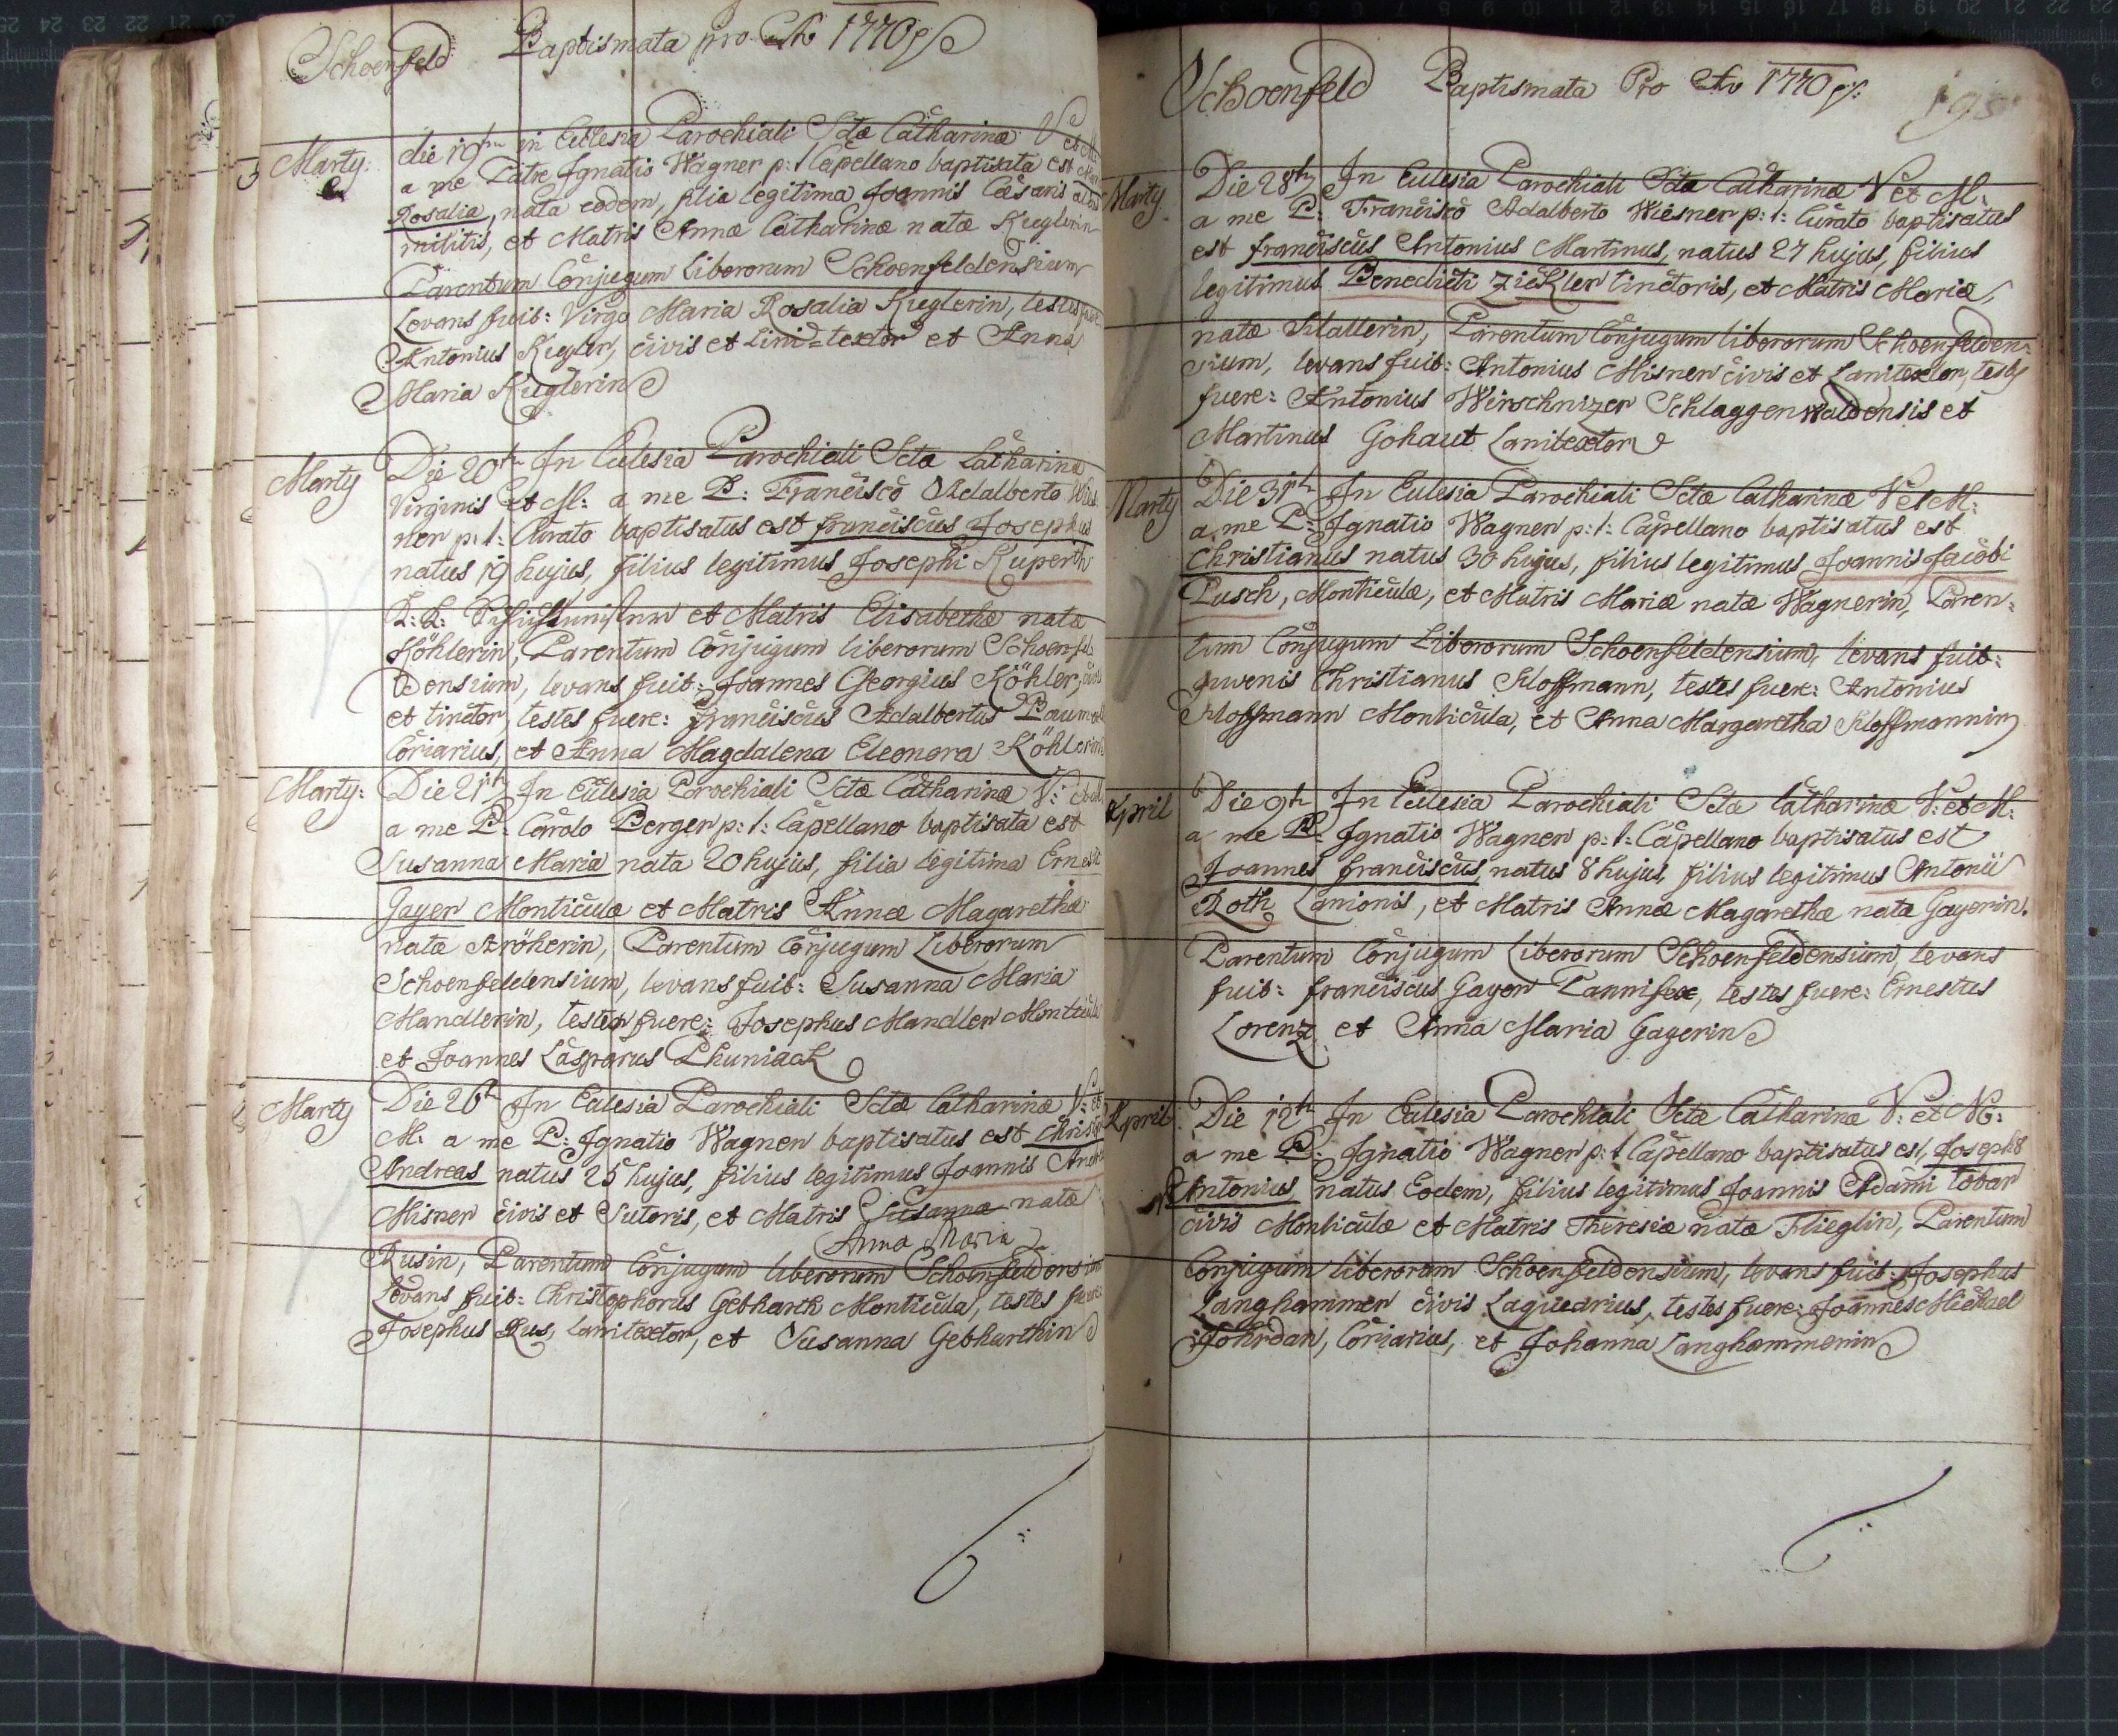 Schoenfeld Baptismata pro Ao 1770
Marty: die 19th in Eclesia Parochiali Sctæ Catharinæ V et M:
a me Patre Ignatio Wagner p: t: Capellano baptisata est
Rosalia, nata eodem, filia legitima Joannis Casaris
militis, et Matris Annæ Catharinæ natæ Kieglerin
Parentum Conjugum Liberorum Schoenfeldensium
Levans fuit: Virgo Maria Rosalia Kieglerin, testes
Antonius Kiegler, civis et Lini=textor et Anna
Maria Kieglerin
Marty Die 20th In Eclesia Parochiali Sctæ Catharinæ
Virginis et M: a me P: Francisco Adalberto Wies
ner p: t: Curato baptisatus est franciscus Josephus
natus 19 hujus, filius legitimus Josephi Ruperth
K: K: et Matris Elisabethæ natæ
Köhlerin, Parentum Conjugum liberorum Schoenfel
densium, levans fuit: Joannes Georgius Köhler,
et tinctor, testes fuere: franciscus Adalbertus
Coriarius, et Anna Magdalena Eleonora Köhlerin
Marty: Die 21th In Eclesia Parochiali Sctæ Catharinæ V:
a me P: Carolo Berger p: t: Capellano baptisata est
Susanna Maria nata 20 hujus, filia legitima Ernesti
Gayer Monticulæ et Matris Annæ Magarethæ
natæ Ströherin, Parentum Conjugum Liberorum
Schoenfeldensium, levans fuit: Susanna Maria
Mandlerin, testes fuere: Josephus Mandler Monticula
et Joannes Casparus Phuniack
Marty Die 26th In Eclesia Parochiali Sctæ Catharinæ V: et
M: a me P: Ignatio Wagner baptisatus est
Andreas natus 25 hujus, filius legitimus Joannis
Misner civis et Sutoris, et Matris Susannæ natæ
Anna Maria
Rusin, Parentum Conjugum liberorum Schoenfeldensium
Levans fuit: Christophorus Gebharth Monticula, testes fuere
Josephus Rus, Lanitextor, et Susanna Gebharthin
Schoenfeld Baptismata Pro Ao 1770
198
Marty Die 28th In Eclesia Parochiali Sctæ Catharinæ V et M:
a me P: Francisco Adalberto Wiesner p: t: Curato baptisatus
est franciscus Antonius Martinus, natus 27 hujus, filius
legitimus Benedicti Zickler tinctoris, et Matris Mariæ,
natæ Hallerin, Parentum Conjugum liberorum Schoenfelden=
sium, levans fuit: Antonius Misner civis et Lanitextor, testes
fuere: Antonius Wirschnizer Schlaggenwaldensis et
Martinus Gohaut Lanitextor
Marty Die 31th In Eclesia Parochiali Sctæ Catharinæ V et M:
a me P: Ignatio Wagner p: t: Capellano baptisatus est
Christianus natus 30 hujus, filius legitimus Joannis Jacobi
Pusch, Monticulæ, et Matris Mariæ natæ Wagnerin, Paren=
tum Conjugum Liberorum Schoenfeldensium, levans fuit:
Juvenis Christianus Hoffmann, testes fuere: Antonius
Hoffmann Monticula, et Anna Margaretha Hoffmannin
April Die 9th In Eclesia Parochiali Sctæ Catharinæ V: et M:
a me P: Ignatio Wagner p: t: Capellano baptisatus est
Joannes franciscus, natus 8 hujus, filius legitimus Antonii
Roth Lanionis, et Matris Annæ Magarethæ natæ Gayerin.
Parentum Conjugum Liberorum Schoenfeldensium, levans
fuit: franciscus Gayer Pannifex, testes fuere: Ernestus
Lorenz et Anna Maria Gayerin
April Die 12th In Eclesia Parochiali Sctæ Catharinæ V: et M:
a me P: Ignatio Wagner p: t Capellano baptisatus est, Josephs
Antonius natus Eodem, filius legitimus Joannis Adami Tobar
civis Monticulæ et Matris Theresiæ natæ Flieglin, Parentum
Conjugum liberorum Schoenfeldensium, levans fuit: Josephus
Langhammer civis Laquearius, testes fuere: Joannes Michael
Johrdan, Coriarius, et Johanna Langhammerin